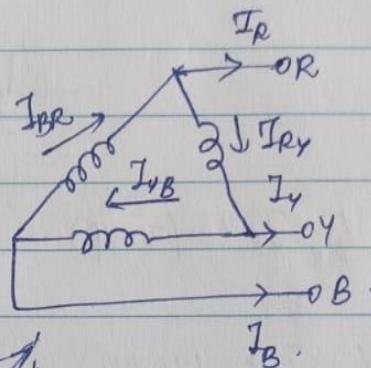 I_R
R
I_BR
I_RY
I_YB
I_Y
Y
B
I_B.